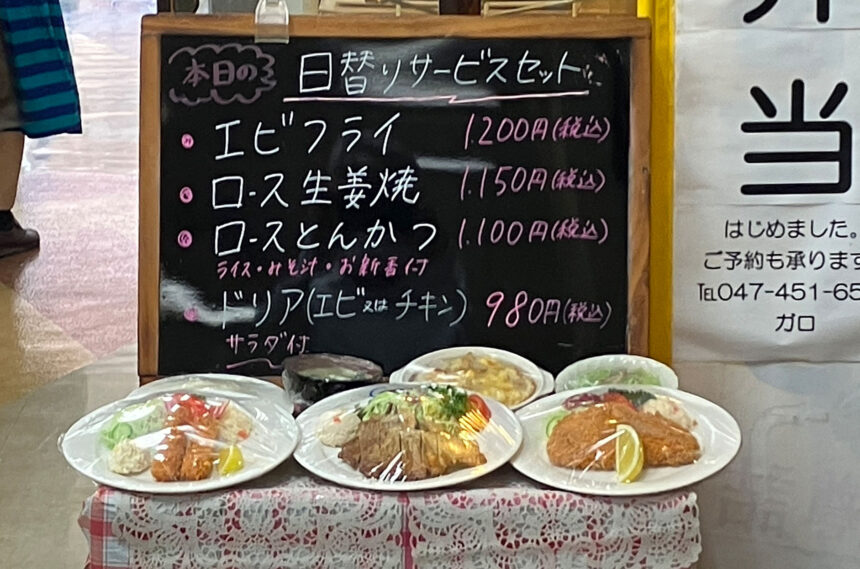 本日の
日替りサービスセット
エビフライ 1.200円(税込)
ロース生姜焼 1.150円(税込)
ロースとんかつ 1.100円(税込)
ライス・みそ汁・お新香付
ドリア(エビ又はチキン) 980円(税込)
サラダ付
弁
当
はじめました。
ご予約も承ります
TEL047-451-65
ガロ